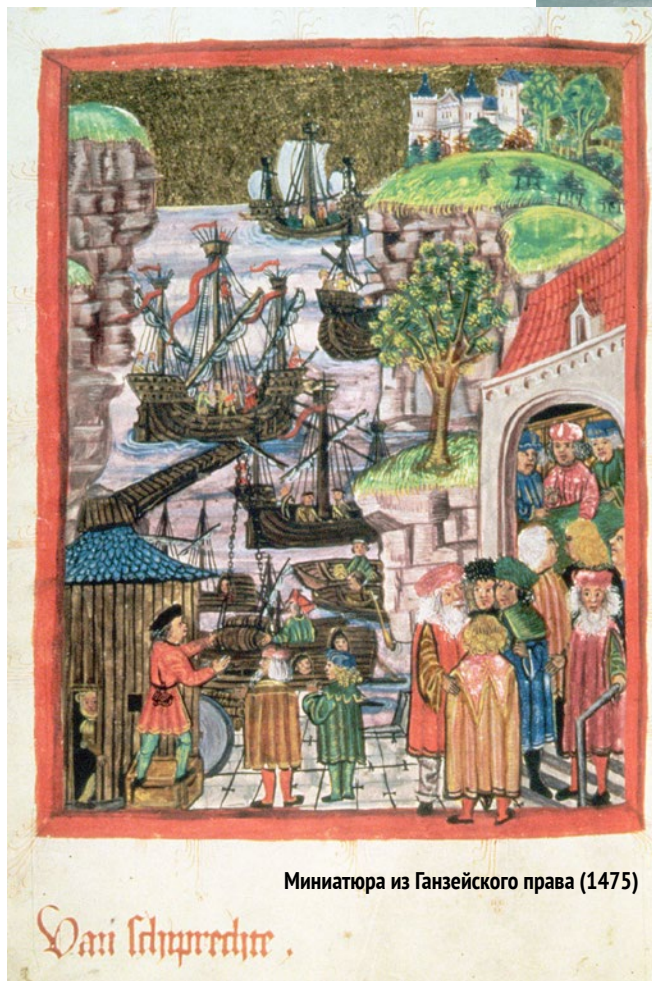 Миниатюра из Ганзейского права (1475)
Van schiprechte.